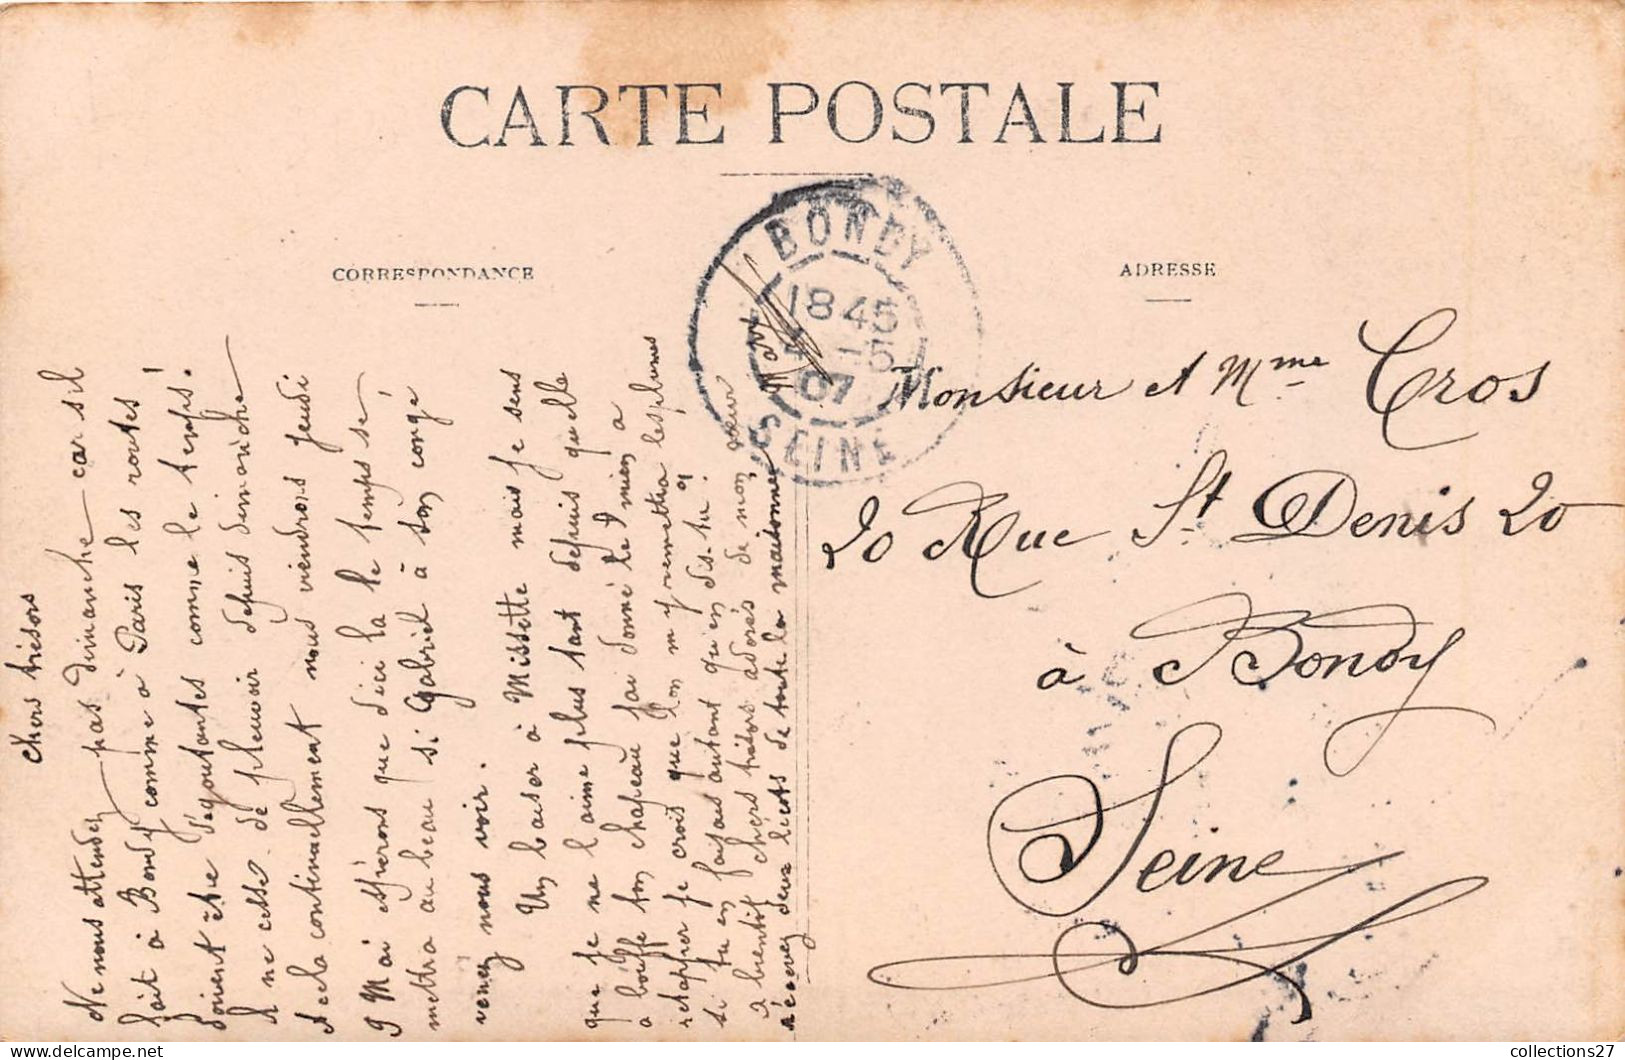 CARTE POSTALE
CORRESPONDANCE
ADRESSE
BONDY
1845
-5
07
SEINE
Monsieur et Mme Cros
20 Rue St Denis 20
à Bondy
Seine
Chers trésors
Ne nous attendez pas dimanche car s'il
fait à Bondy comme à Paris les routes
doivent être dégoutantes comme le temps!
Il ne cesse de pleuvoir depuis dimanche
et cela continuellement nous viendrons jeudi
9 Mai espérons que d'ici la le temps se
mettra au beau si Gabriel à son congé
venez nous voir.
Un baiser à Missette mais je sens
que je ne l'aime plus tant depuis quelle
a bouffé ton chapeau j'ai donné le mien a
retapper je crois que l'on m'y remettra les plumes
si tu en faisais autant qu'en dis-tu?
à bientôt chers trésors adorés de mon cœur
recevez deux lécots de toute la maisonnée
collections27